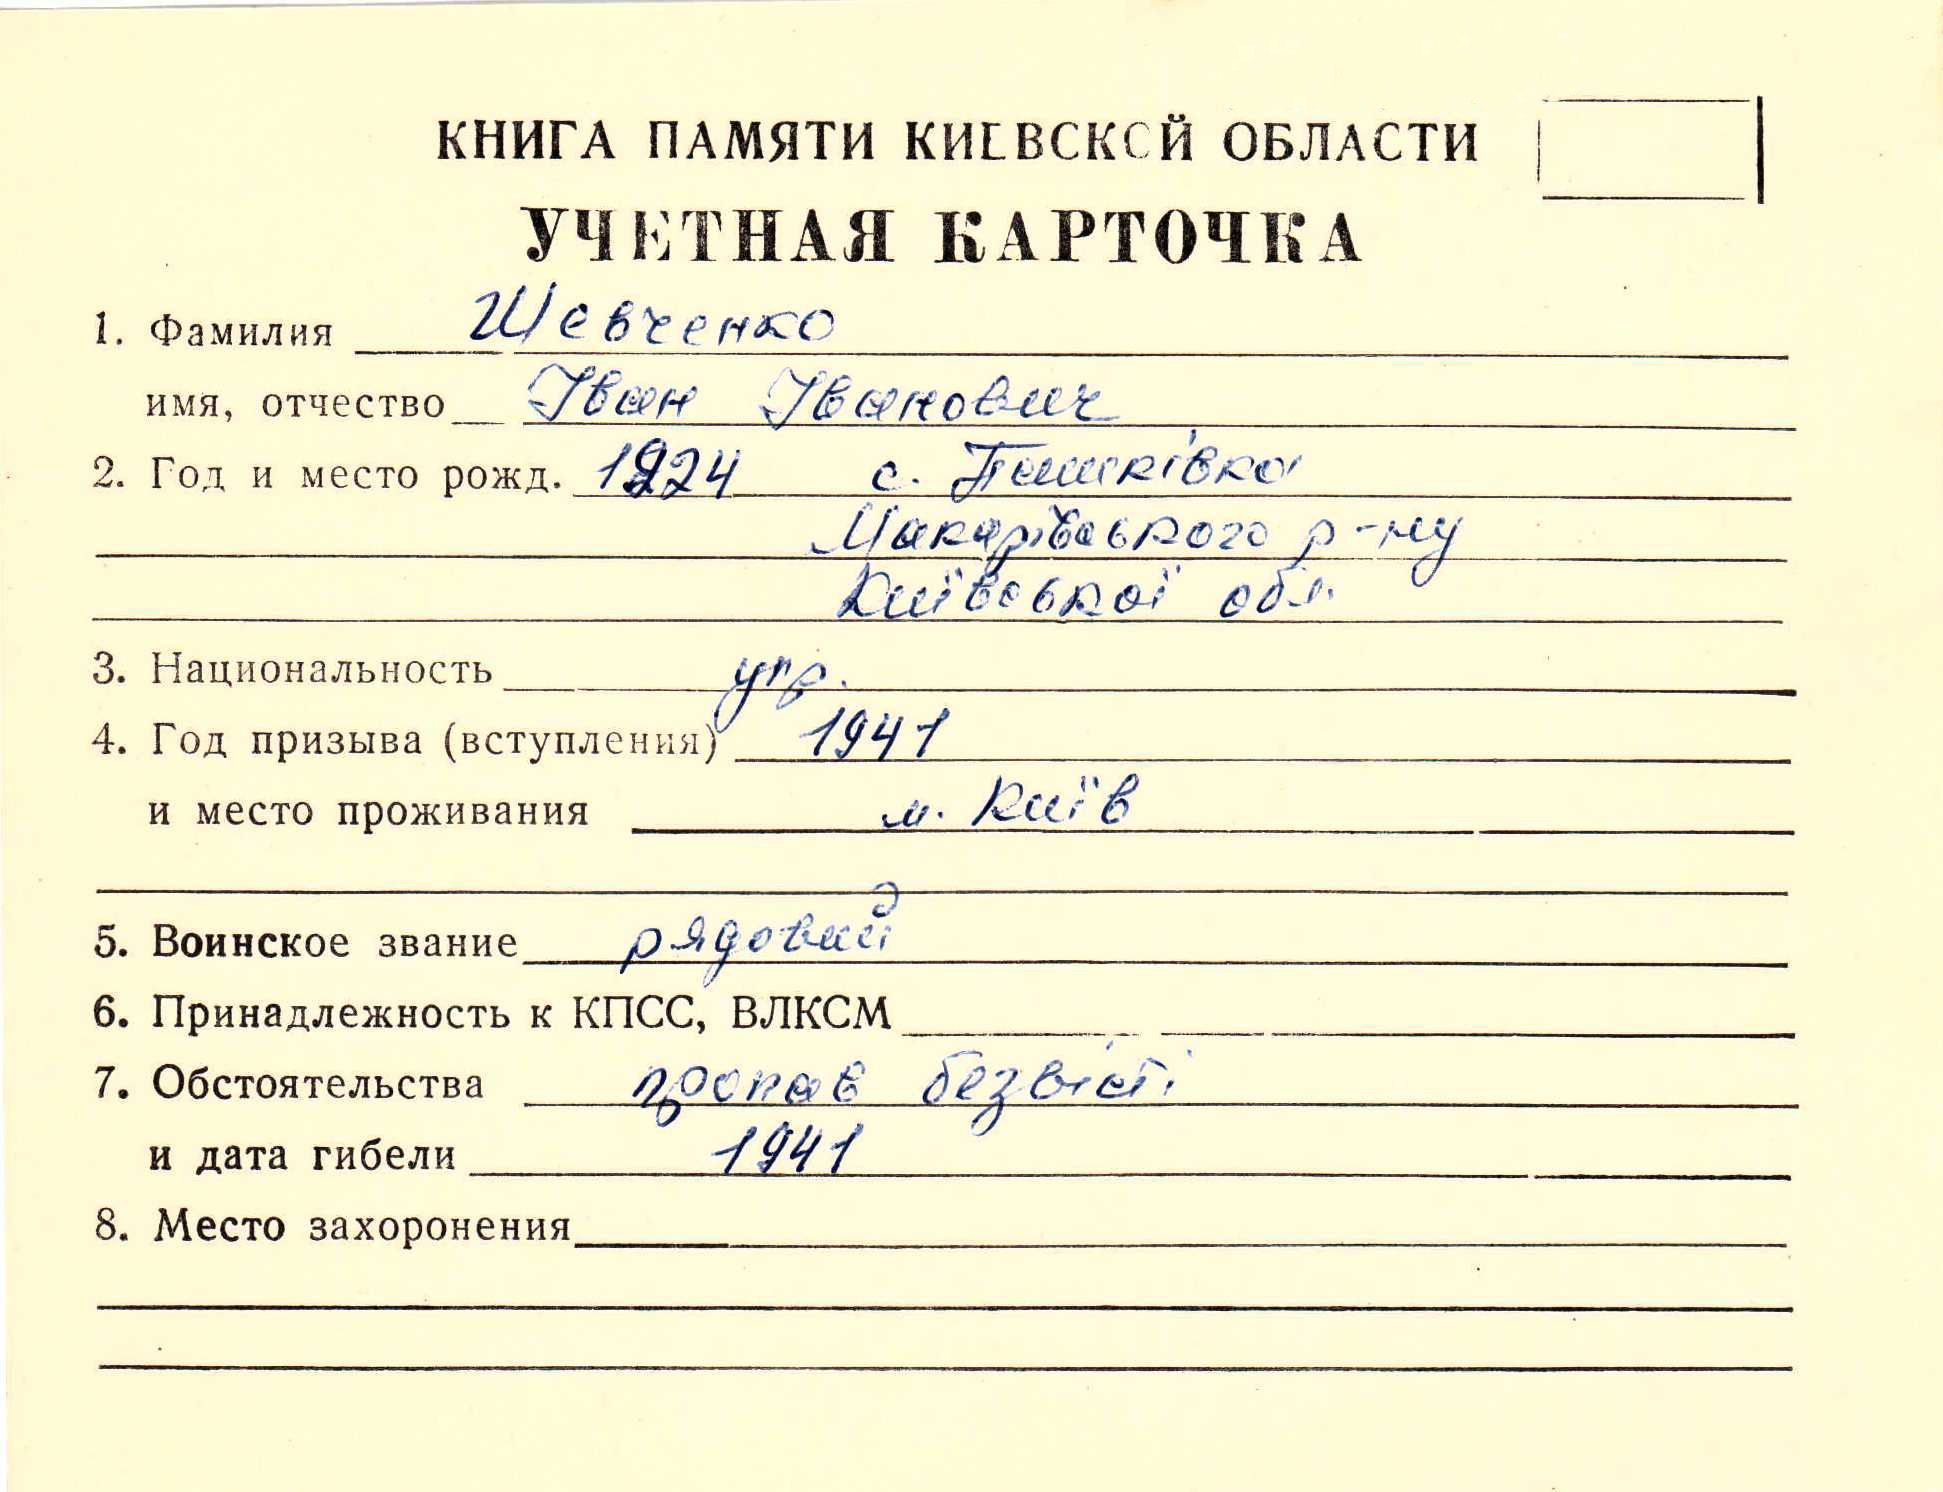 КНИГА ПАМЯТИ КИЕВСКОЙ ОБЛАСТИ
УЧЕТНАЯ КАРТОЧКА
1. Фамилия Шевченко
имя, отчество Іван Іванович
2. Год и место рожд. 1924 с. Пашківка
Макарівського р-ну
Київської обл.
3. Национальность укр.
4. Год призыва (вступления) 1941
и место проживания м. Київ
5. Воинское звание рядовий
6. Принадлежность к КПСС, ВЛКСМ
7. Обстоятельства пропав безвісті
и дата гибели 1941
8. Место захоронения